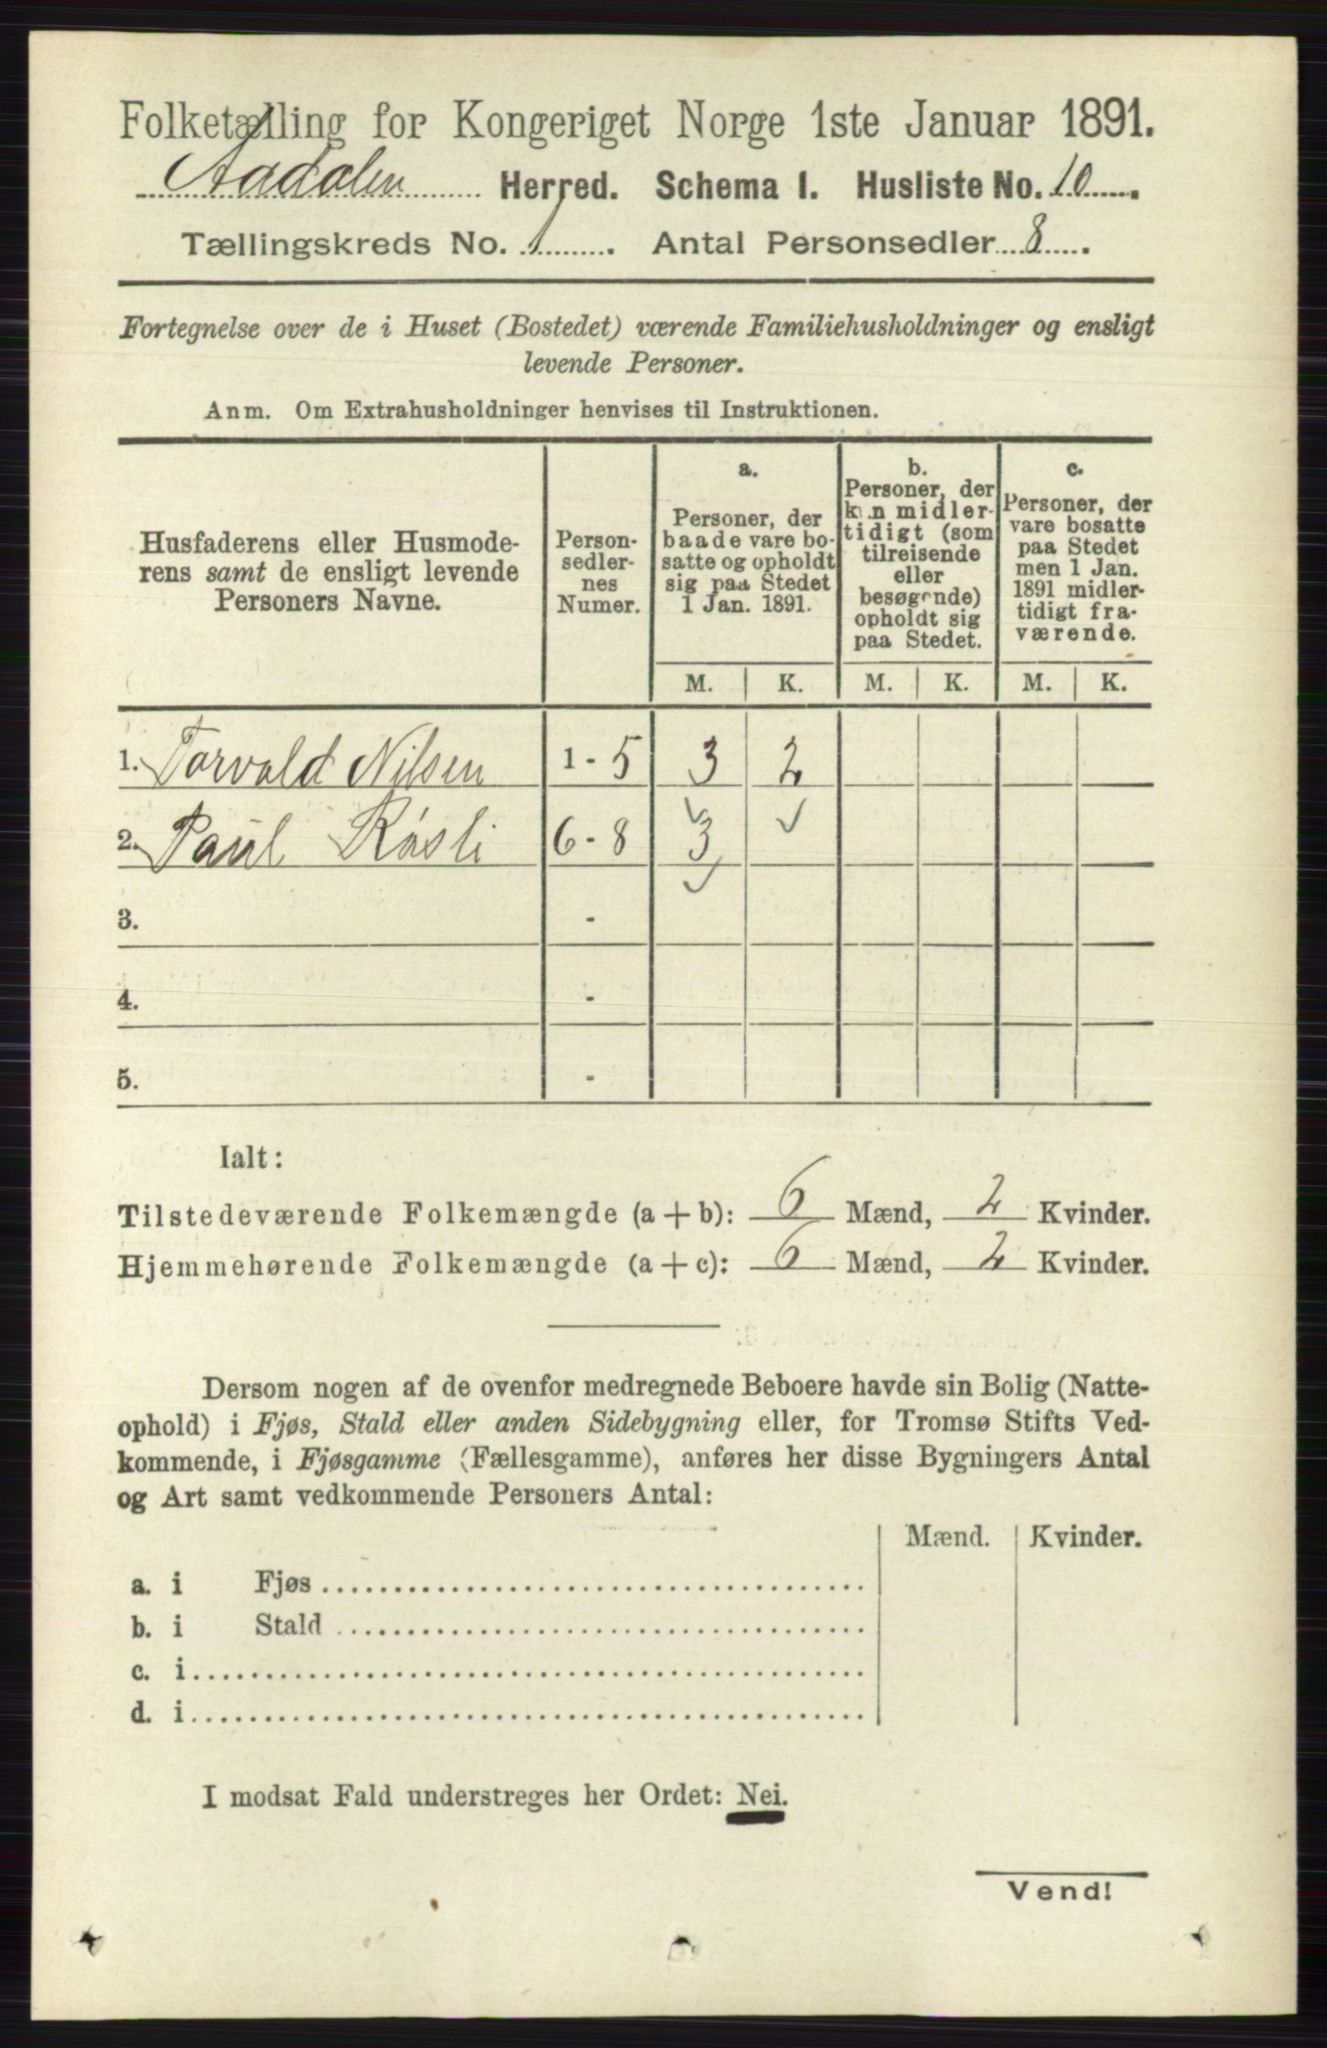 Folketælling for Kongeriget Norge 1ste Januar 1891.
Aadalen Herred. Schema I. Husliste No. 10.
Tællingskreds No. 1. Antal Personsedler 8.
Fortegnelse over de i Huset (Bostedet) værende Familiehusholdninger og ensligt
levende Personer.
Anm. Om Extrahusholdninger henvises til Instruktionen.
Husfaderens eller Husmode-
rens samt de ensligt levende
Personers Navne.
Person-
sedler-
nes
Numer.
a.
Personer, der
baade vare bo-
satte og opholdt
sig paa Stedet
1 Jan. 1891.
b.
Personer, der
kun midler-
tidigt (som
tilreisende
eller
besøgende)
opholdt sig
paa Stedet.
c.
Personer, der
vare bosatte
paa Stedet
men 1 Jan.
1891 midler-
tidigt fra-
værende.
M. K. M. K. M. K.
1. Torvald Nilsen 1 - 5 3 2
2. Paul Råsli 6 - 8 3
3. -
4. -
5. -
Ialt:
Tilstedeværende Folkemængde (a + b): 6 Mænd, 2 Kvinder.
Hjemmehørende Folkemængde (a + c): 6 Mænd, 2 Kvinder.
Dersom nogen af de ovenfor medregnede Beboere havde sin Bolig (Natte-
ophold) i Fjøs, Stald eller anden Sidebygning eller, for Tromsø Stifts Ved-
kommende, i Fjøsgamme (Fællesgamme), anføres her disse Bygningers Antal
og Art samt vedkommende Personers Antal:
Mænd. Kvinder.
a. i Fjøs
b. i Stald
c. i
d. i
I modsat Fald understreges her Ordet: Nei.
Vend!